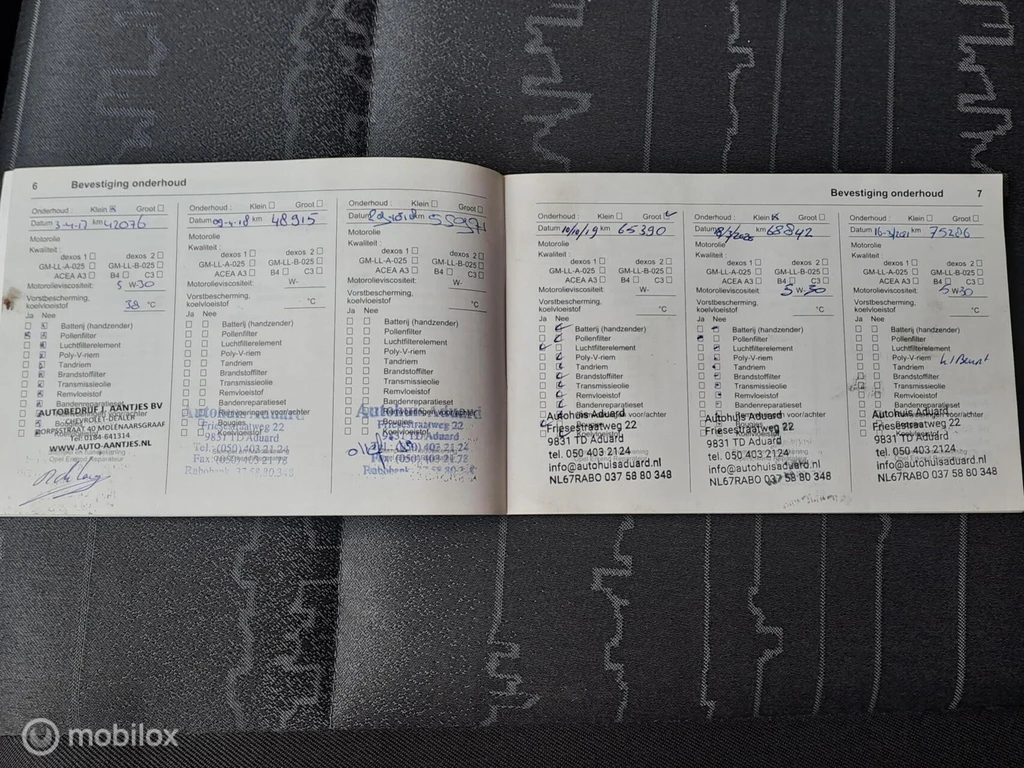 6 Bevestiging onderhoud
Onderhoud : Klein Groot
Datum 3-4-17 km 42076
Motorolie
Kwaliteit :
dexos 1 dexos 2
GM-LL-A-025 GM-LL-B-025
ACEA A3 B4 C3
Motorolieviscositeit: 5 W-30
Vorstbescherming,
koelvloeistof 38 °C
Ja Nee
Batterij (handzender)
Pollenfilter
Luchtfilterelement
Poly-V-riem
Tandriem
Brandstoffilter
Transmissieolie
Remvloeistof
Bandenreparatieset
AUTOBEDRIJF J. AANTJES BV
CHEVROLET DEALER
DORPSSTRAAT 40 MOLENAARSGRAAF
Tel: 0184-641314
WWW.AUTO-AANTJES.NL
Onderhoud : Klein Groot
Datum 09-4-18 km 48915
Motorolie
Kwaliteit :
dexos 1 dexos 2
GM-LL-A-025 GM-LL-B-025
ACEA A3 B4 C3
Motorolieviscositeit: W-
Vorstbescherming,
koelvloeistof °C
Ja Nee
Batterij (handzender)
Pollenfilter
Luchtfilterelement
Poly-V-riem
Tandriem
Brandstoffilter
Transmissieolie
Remvloeistof
Bandenreparatieset
Remvoeringen voor/achter
Friesestraatweg 22
9831 TD Aduard
Tel. (050) 403 21 24
Fax (050) 403 21 78
Rabobank 37.58.80.348
Onderhoud : Klein Groot
Datum km
Motorolie
Kwaliteit :
dexos 1 dexos 2
GM-LL-A-025 GM-LL-B-025
ACEA A3 B4 C3
Motorolieviscositeit: W-
Vorstbescherming,
koelvloeistof °C
Ja Nee
Batterij (handzender)
Pollenfilter
Luchtfilterelement
Poly-V-riem
Tandriem
Brandstoffilter
Transmissieolie
Remvloeistof
Bandenreparatieset
Autohuis Aduard
Friesestraatweg 22
9831 TD Aduard
(050) 403 21 24
(050) 403 21 78
Rabobank 37.58.80.3
Bevestiging onderhoud 7
Onderhoud : Klein Groot
Datum 10/10/19 km 65390
Motorolie
Kwaliteit :
dexos 1 dexos 2
GM-LL-A-025 GM-LL-B-025
ACEA A3 B4 C3
Motorolieviscositeit: W-
Vorstbescherming,
koelvloeistof °C
Ja Nee
Batterij (handzender)
Pollenfilter
Luchtfilterelement
Poly-V-riem
Tandriem
Brandstoffilter
Transmissieolie
Remvloeistof
Bandenreparatieset
Autohuis Aduard
Friesestraatweg 22
9831 TD Aduard
tel. 050 403 2124
info@autohuisaduard.nl
NL67RABO 037 58 80 348
Onderhoud : Klein Groot
Datum km 68842
Motorolie
Kwaliteit :
dexos 1 dexos 2
GM-LL-A-025 GM-LL-B-025
ACEA A3 B4 C3
Motorolieviscositeit: 5 W-30
Vorstbescherming,
koelvloeistof °C
Ja Nee
Batterij (handzender)
Pollenfilter
Luchtfilterelement
Poly-V-riem
Tandriem
Brandstoffilter
Transmissieolie
Remvloeistof
Bandenreparatieset
Autohuis Aduard
Friesestraatweg 22
9831 TD Aduard
tel. 050 403 2124
info@autohuisaduard.nl
NL67RABO 037 58 80 348
Onderhoud : Klein Groot
Datum 16-3/2021 km 75286
Motorolie
Kwaliteit :
dexos 1 dexos 2
GM-LL-A-025 GM-LL-B-025
ACEA A3 B4 C3
Motorolieviscositeit: 5 W30
Vorstbescherming,
koelvloeistof °C
Ja Nee
Batterij (handzender)
Pollenfilter
Luchtfilterelement
Poly-V-riem
Tandriem
Brandstoffilter
Transmissieolie
Remvloeistof
Bandenreparatieset
Autohuis Aduard
Friesestraatweg 22
9831 TD Aduard
tel. 050 403 2124
info@autohuisaduard.nl
NL67RABO 037 58 80 348
mobilox